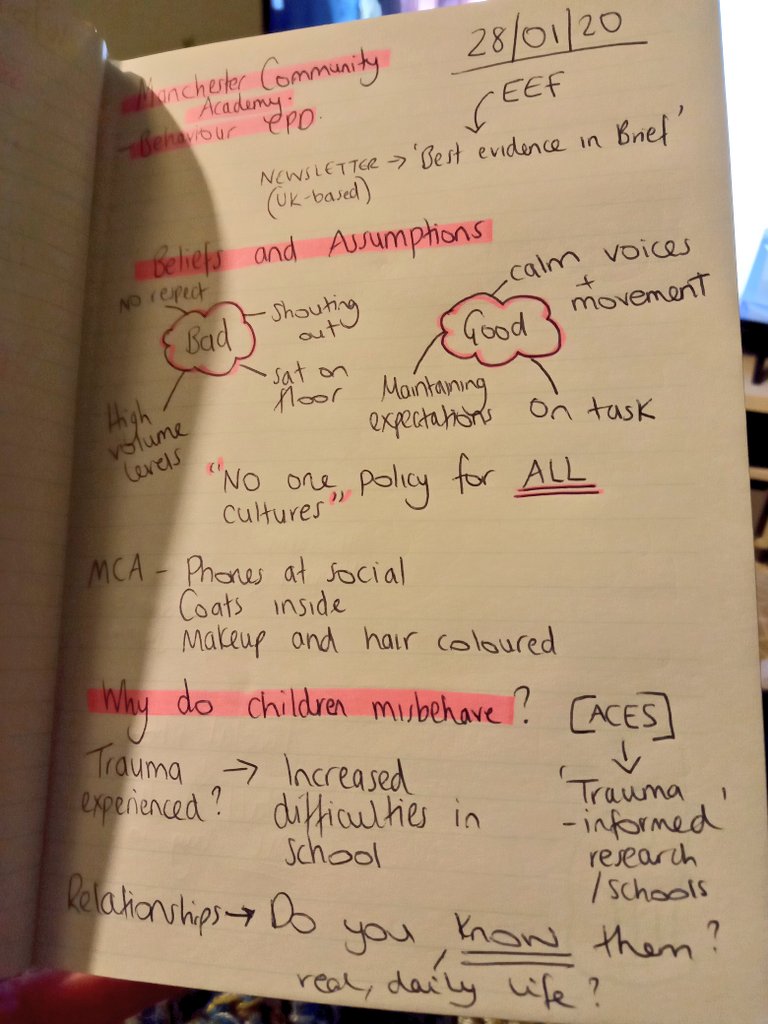 28/01/20
Manchester Community
Academy.
- Behaviour CPD.
EEF
NEWSLETTER → 'Best evidence in Brief'
(UK-based)
Beliefs and Assumptions
No respect
Bad
Shouting
out
sat on
floor
High
volume
levels
Good
calm voices
+
movement
Maintaining
expectations
On task
"No one policy for ALL
cultures"
MCA - Phones at social
Coats inside
Makeup and hair coloured
Why do children misbehave?
[ACES]
Trauma → Increased
experienced? difficulties in
school
'Trauma
-informed'
research
/schools
Relationships → Do you know them?
real, daily life?